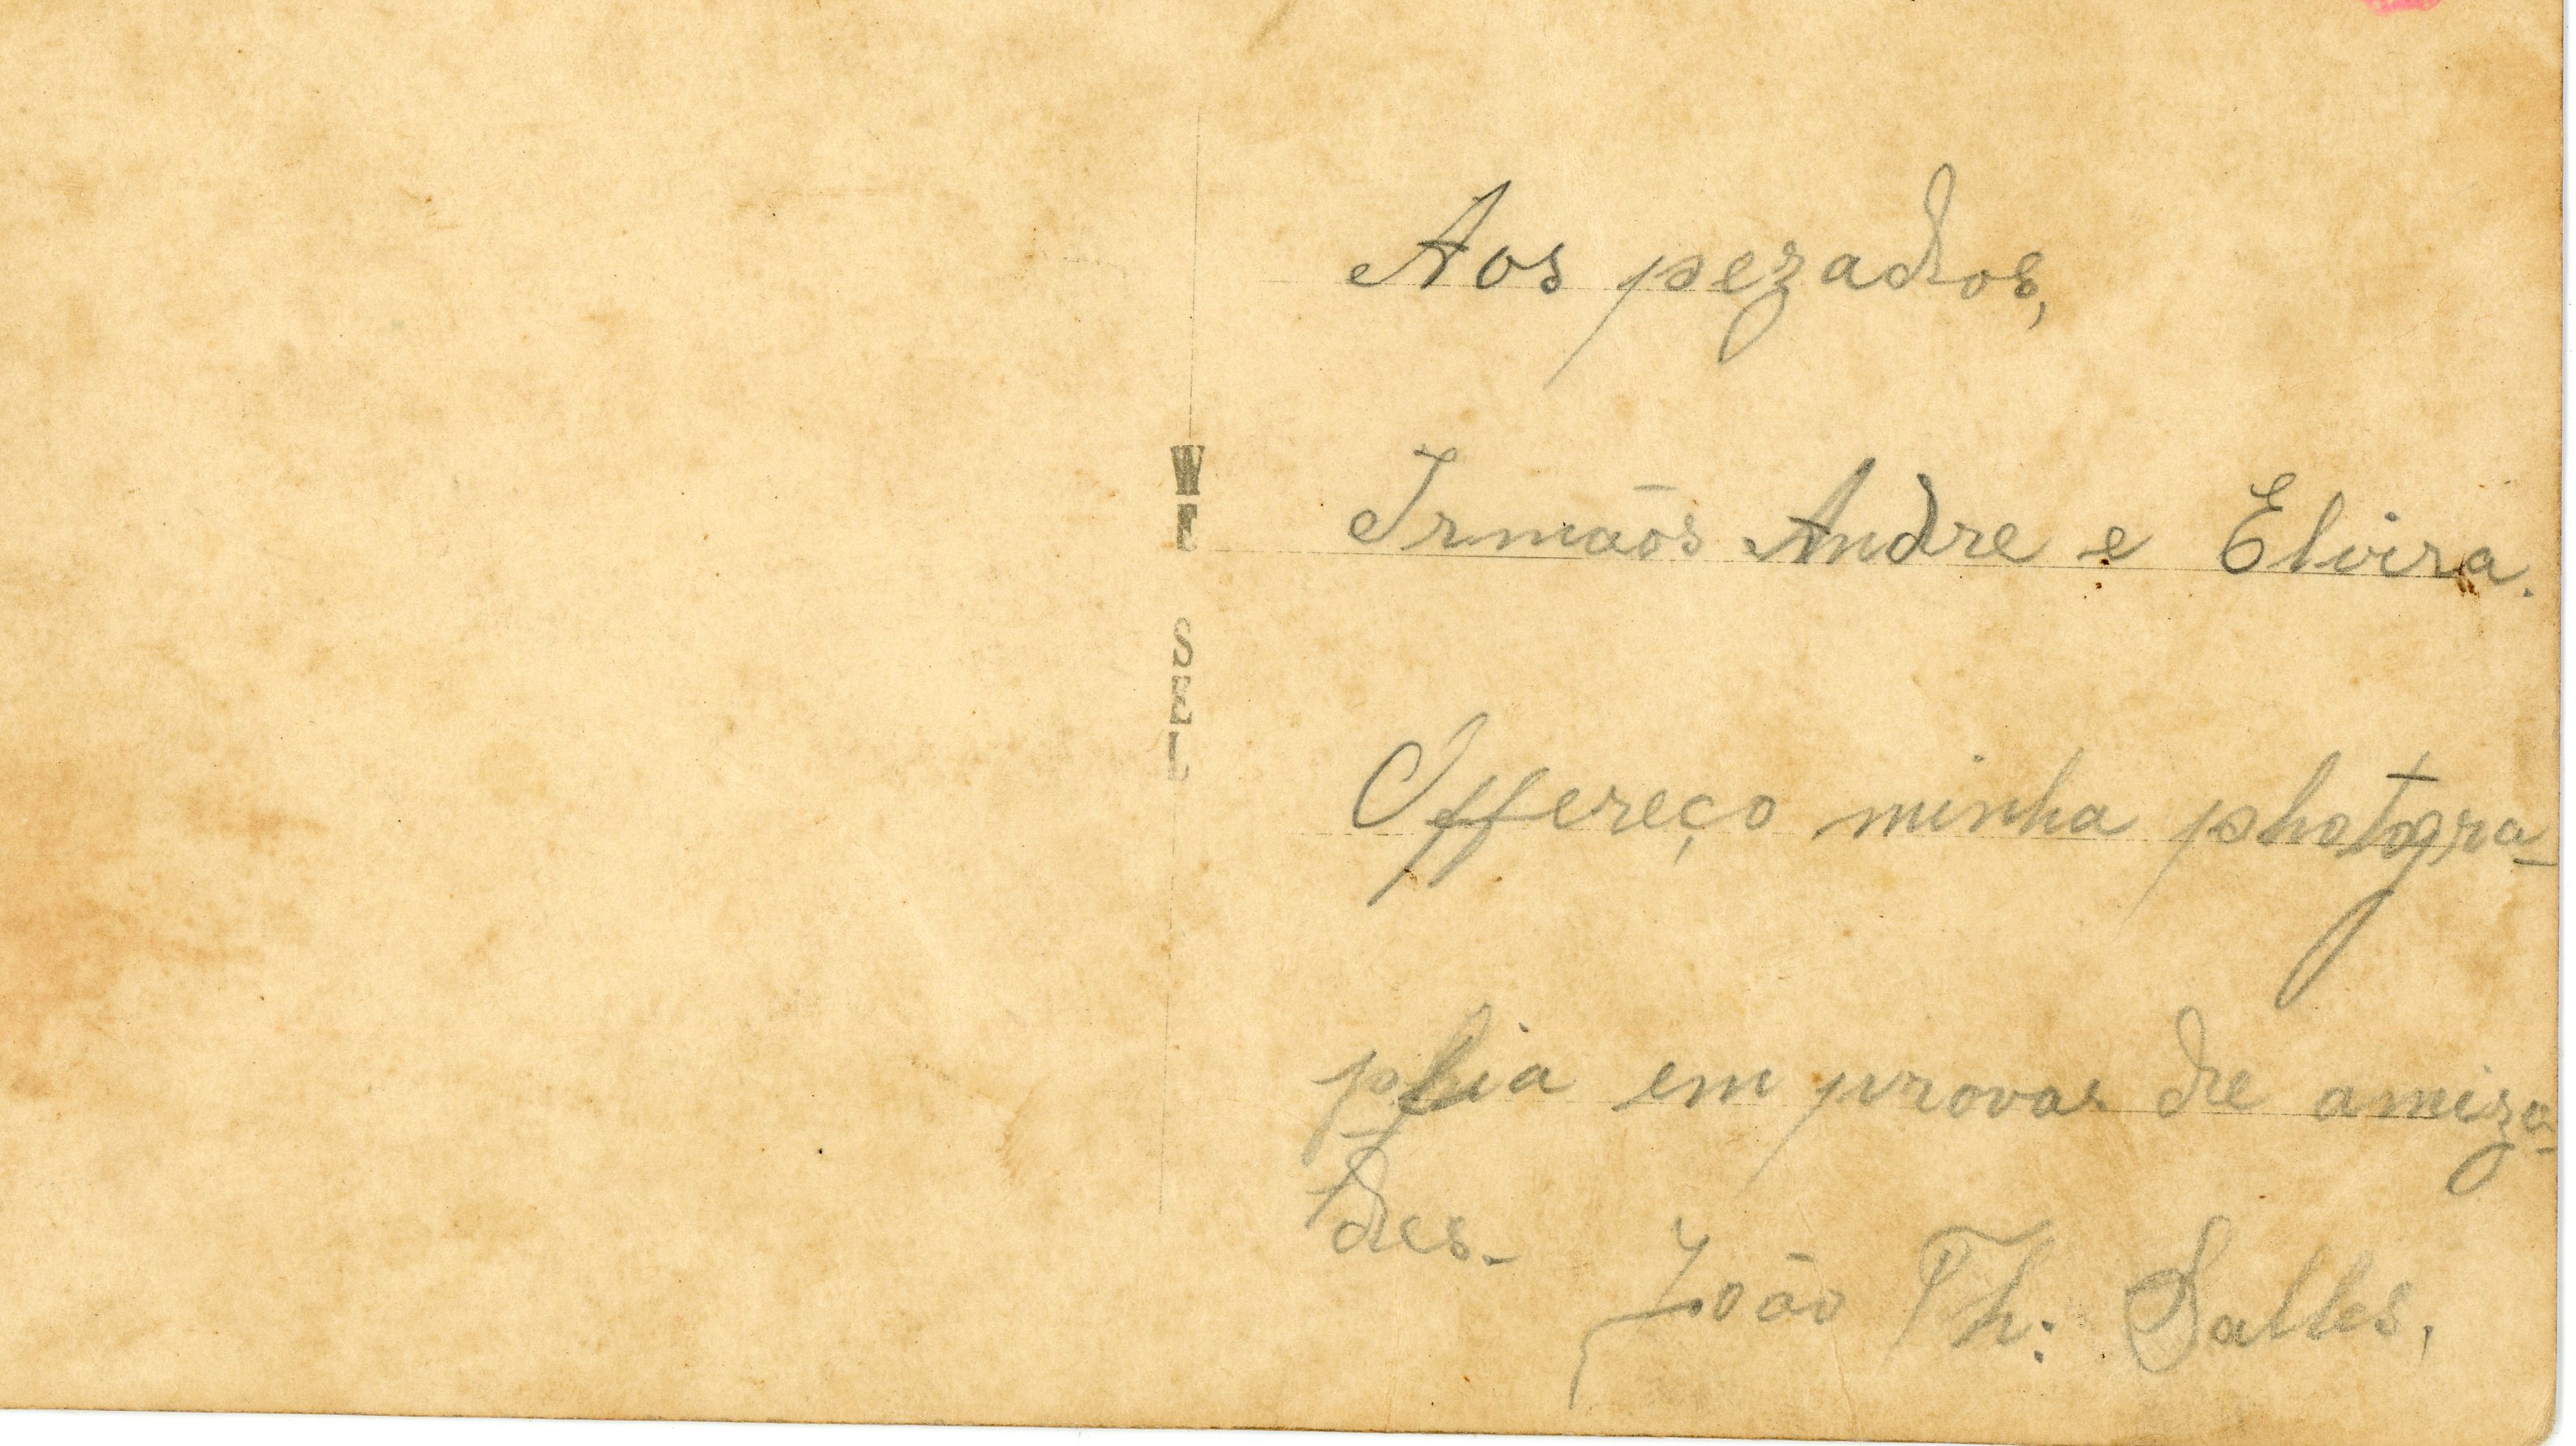 Aos pezados,
Irmaõs Andre e Elvira.
Offereço minha photogra-
phia em provas de amiza-
des.
João Th: Salles.
WE SEL